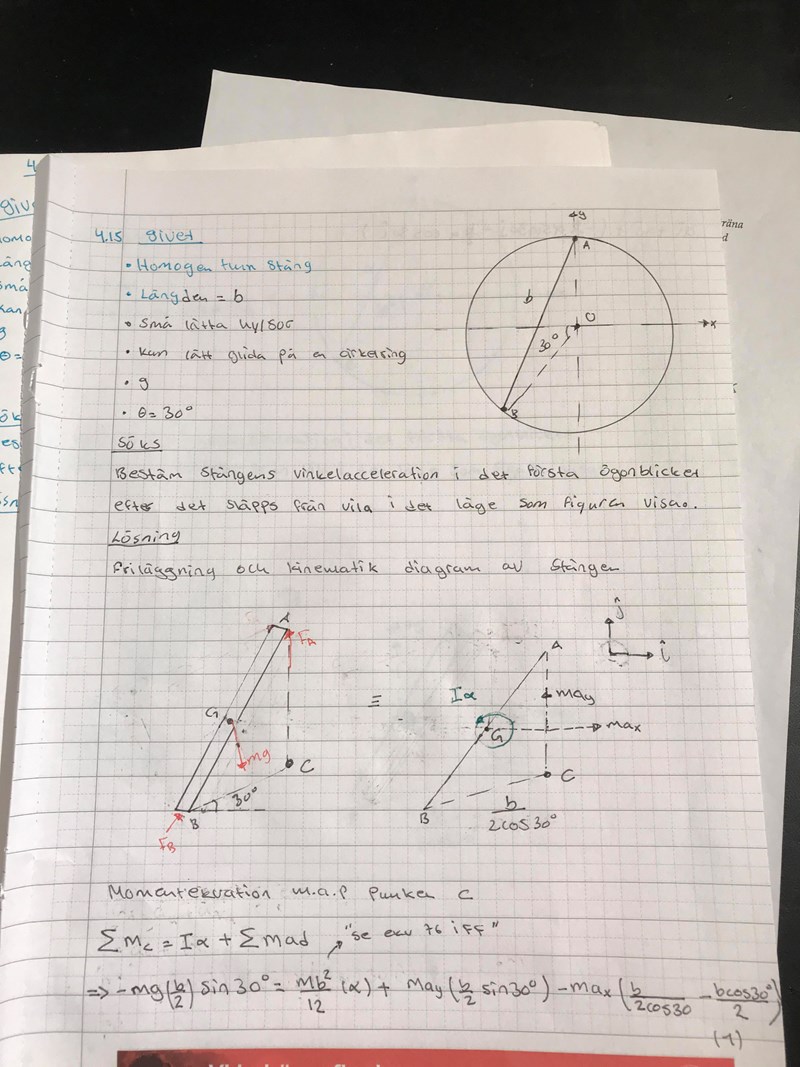 4.15 givet
• Homogen tunn Stång
• Längden = b
• Små lätta hylsor
• Kan lätt glida på en cirkelring
• g
• θ = 30°
Söks
Bestäm Stångens vinkelacceleration i det första ögonblicket
efter det släpps från vila i det läge som figuren visar.
Lösning
Friläggning och kinematik diagram av Stången
y
A
b
O
x
30°
B
A
F_A
G
mg
C
30°
B
F_B
≡
A
ĵ
î
may
Iα
G
max
C
B
b/2cos30°
Momentekvation m.a.p Punkten C
∑M_c = Iα + ∑mad "se ekv 76 i FF"
=> -mg(b/2) sin30° = mb²/12 (α) + may(b/2 sin30°) - max(b/2cos30 - bcos30°/2)
(1)
räna
d
4
giv
omo
äng
små
kan
g
θ=
ök
es